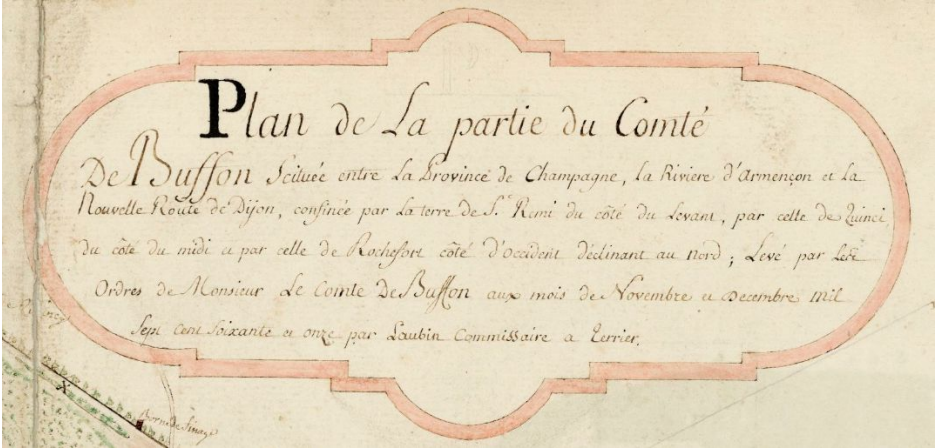 Plan de La partie du Comté
De Buffon Scituée entre La Province de Champagne, La Riviere d'Armençon et La
Nouvelle Route de Dijon, confinée par La terre de St. Remi du côté du Levant, par celle de Quinci
du côté du midi et par celle de Rochefort côté d'occident déclinant au nord; Levé par Les
Ordres de Monsieur Le Comte De Buffon aux mois de Novembre et Decembre mil
Sept Cent Soixante et onze par Laubin Commissaire a Terrier.